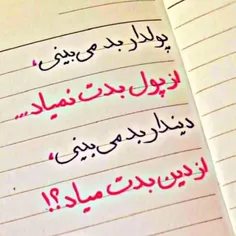 پولدار بد می بینی،
از پول بدت نمیاد...
دیندار بد می بینی،
از دین بدت میاد؟!